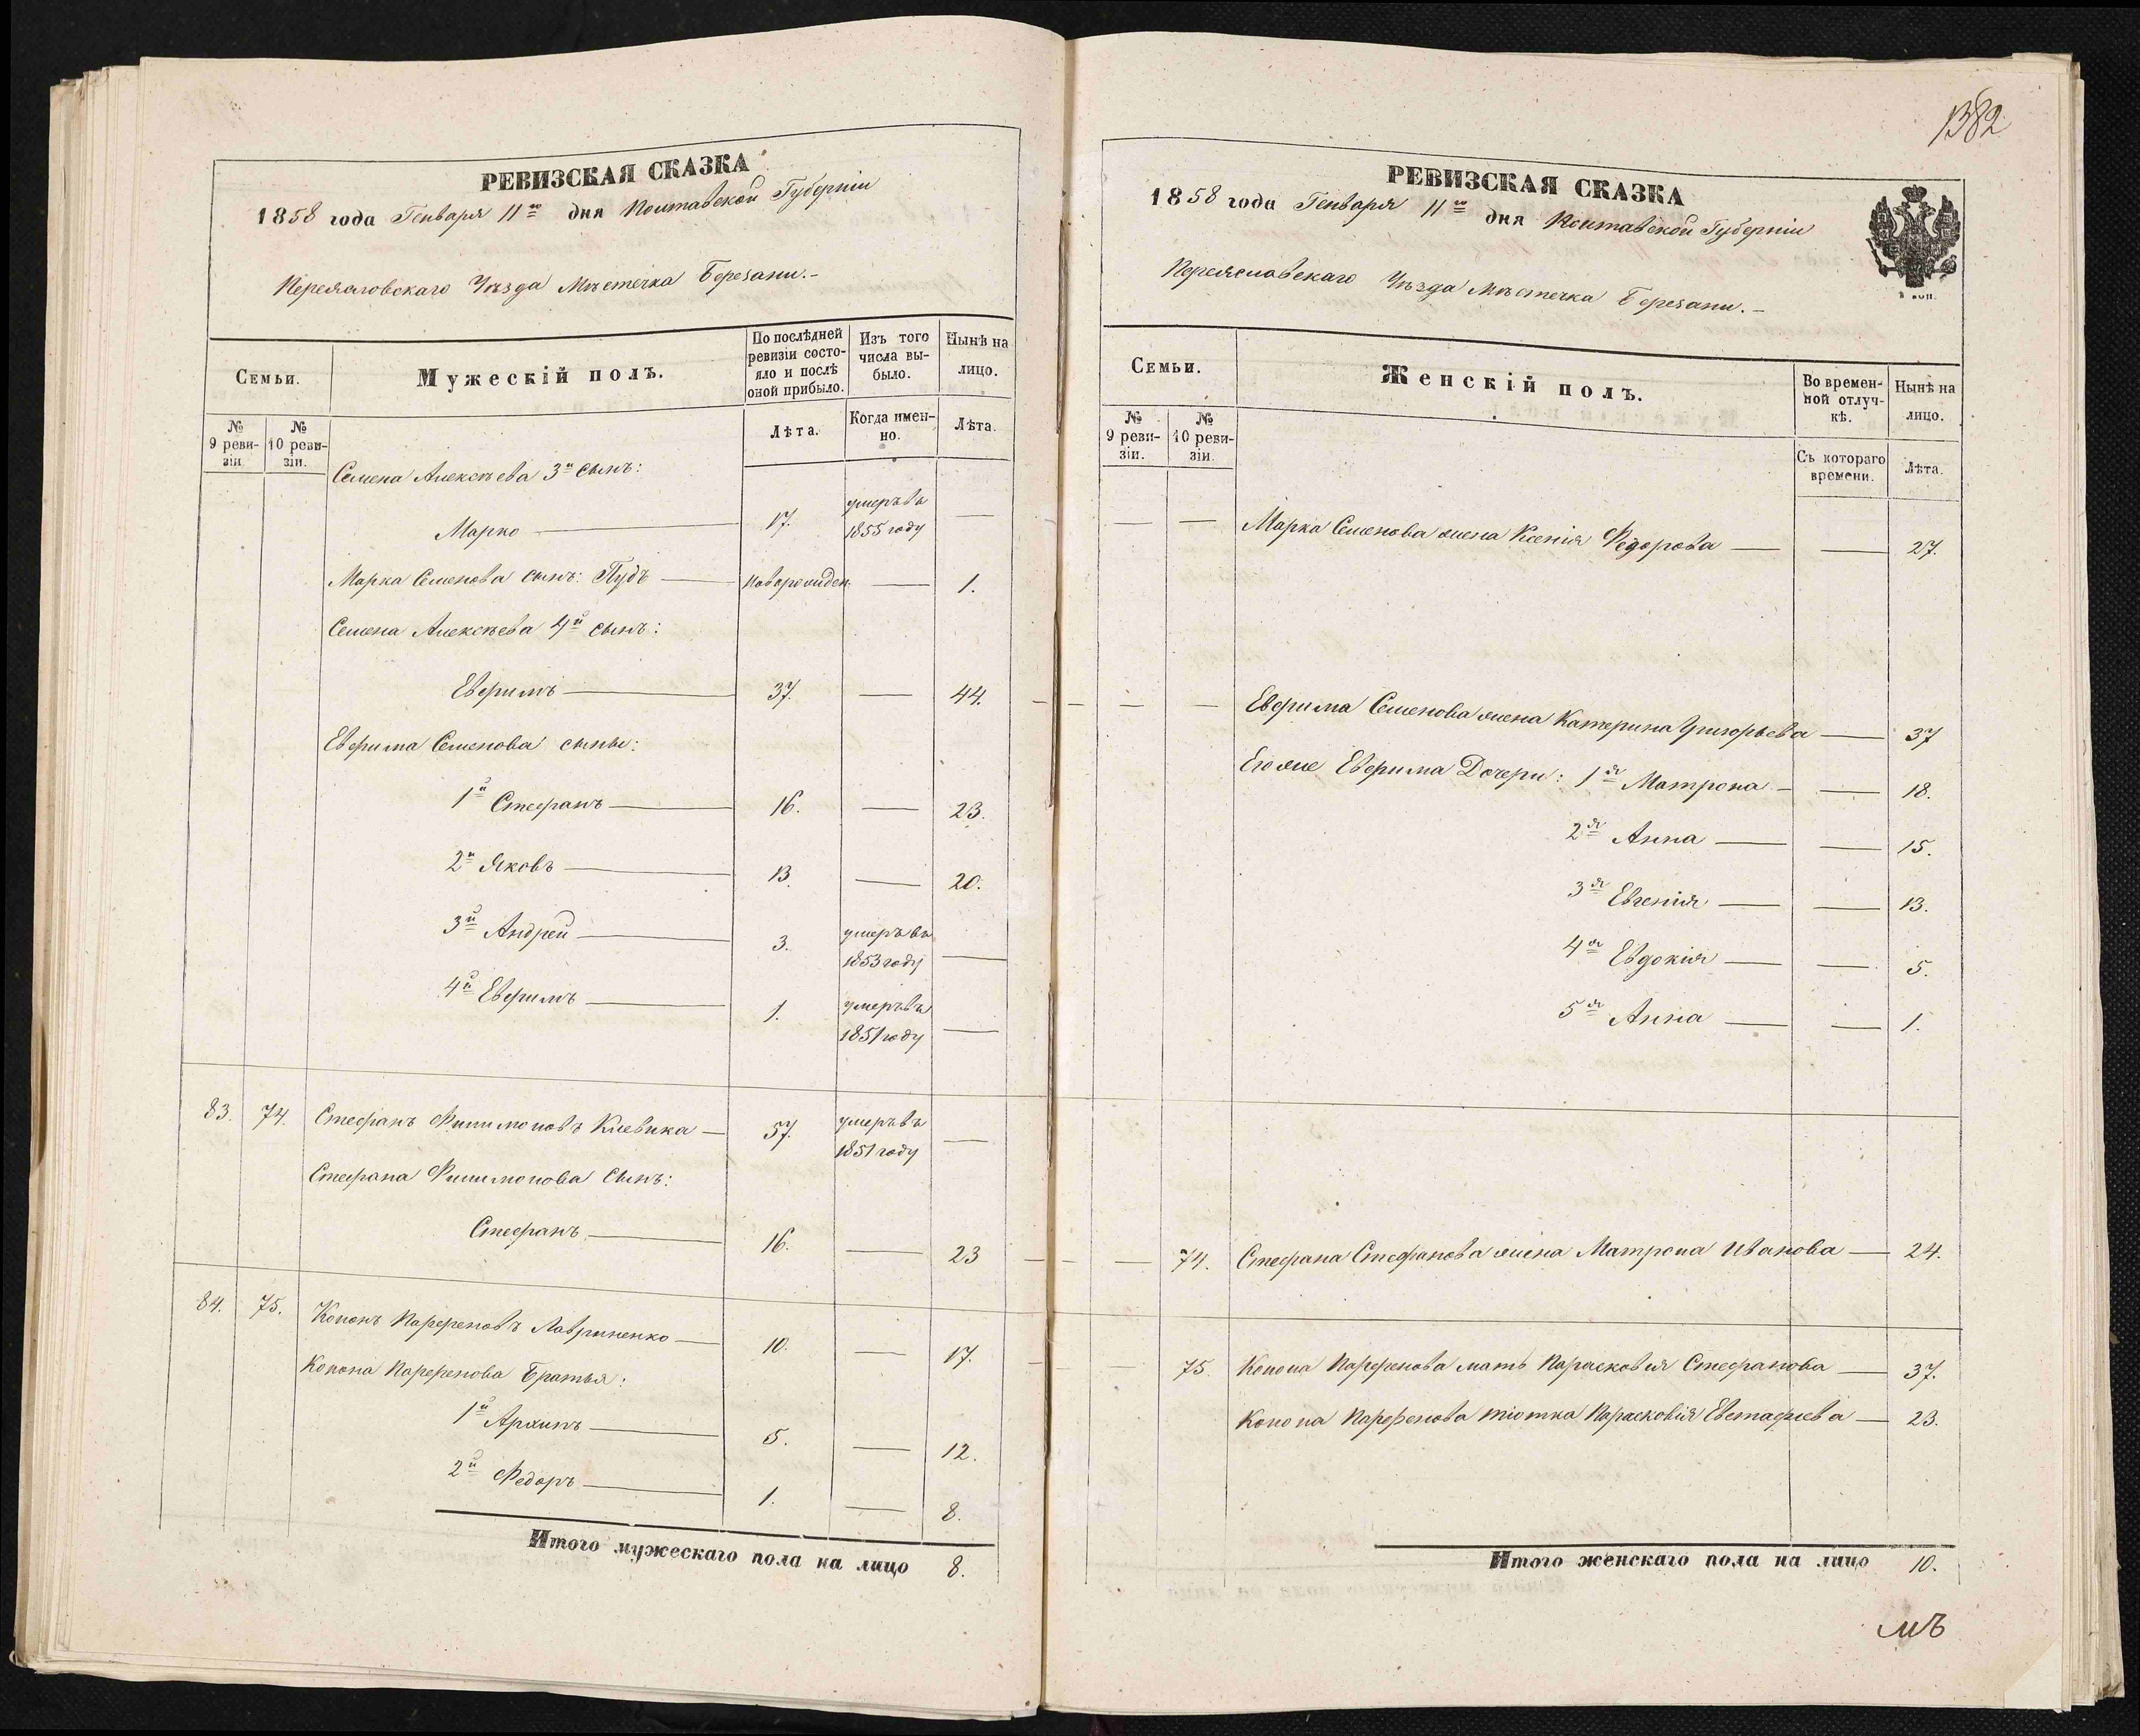 РЕВИЗСКАЯ СКАЗКА
1858 года Генваря 11го дня Полтавской Губерніи
Переяславскаго Уѣзда Мѣстечка Березани.-
Семьи.
Мужескій полъ.
По послѣдней ревизіи состояло и послѣ оной прибыло.
Изъ того числа выбыло.
Нынѣ на лицо.
№ 9 ревизіи.
№ 10 ревизіи.
Лѣта.
Когда именно.
Лѣта.
Семена Алексѣева 3й сынъ:
Марко — 17. умеръ въ 1855 году —
Марка Семенова сынъ: Пудъ — новорожден. — 1.
Семена Алексѣева 4й сынъ:
Евфимъ — 37. — 44.
Евфима Семенова сыны:
1й Стефанъ — 16. — 23.
2й Яковъ — 13. — 20.
3й Андрей — 3. умеръ въ 1853 году —
4й Евфимъ — 1. умеръ въ 1851 году —
83. 74. Стефанъ Филимоновъ — 57. умеръ въ 1851 году —
Стефана Филимонова сынъ:
Стефанъ — 16. — 23
84. 75. Кононъ Парфеновъ Лавриненко — 10. — 17.
Конона Парфенова Братья:
1й Архипъ — 5. — 12.
2й Федоръ — 1. — 8.
Итого мужескаго пола на лицо 8.
1382
РЕВИЗСКАЯ СКАЗКА
1858 года Генваря 11го дня Полтавской Губерніи
Переяславскаго Уѣзда Мѣстечка Березани.-
Семьи.
Женскій полъ.
Во временной отлучкѣ.
Нынѣ на лицо.
№ 9 ревизіи.
№ 10 ревизіи.
Съ котораго времени.
Лѣта.
Марка Семенова жена Ксенія Федорова — — 27.
Евфима Семенова жена Катерина Григорьева — 37
Его же Евфима Дочери: 1я Матрона — — 18.
2я Анна — — 15.
3я Евгенія — — 13.
4я Евдокія — — 5.
5я Анна — — 1.
74. Стефана Стефанова жена Матрона Иванова — 24.
75. Конона Парфенова мать Парасковія Стефанова — 37.
Конона Парфенова тіотка Парасковія Евстафіева — 23.
Итого женскаго пола на лицо 10.